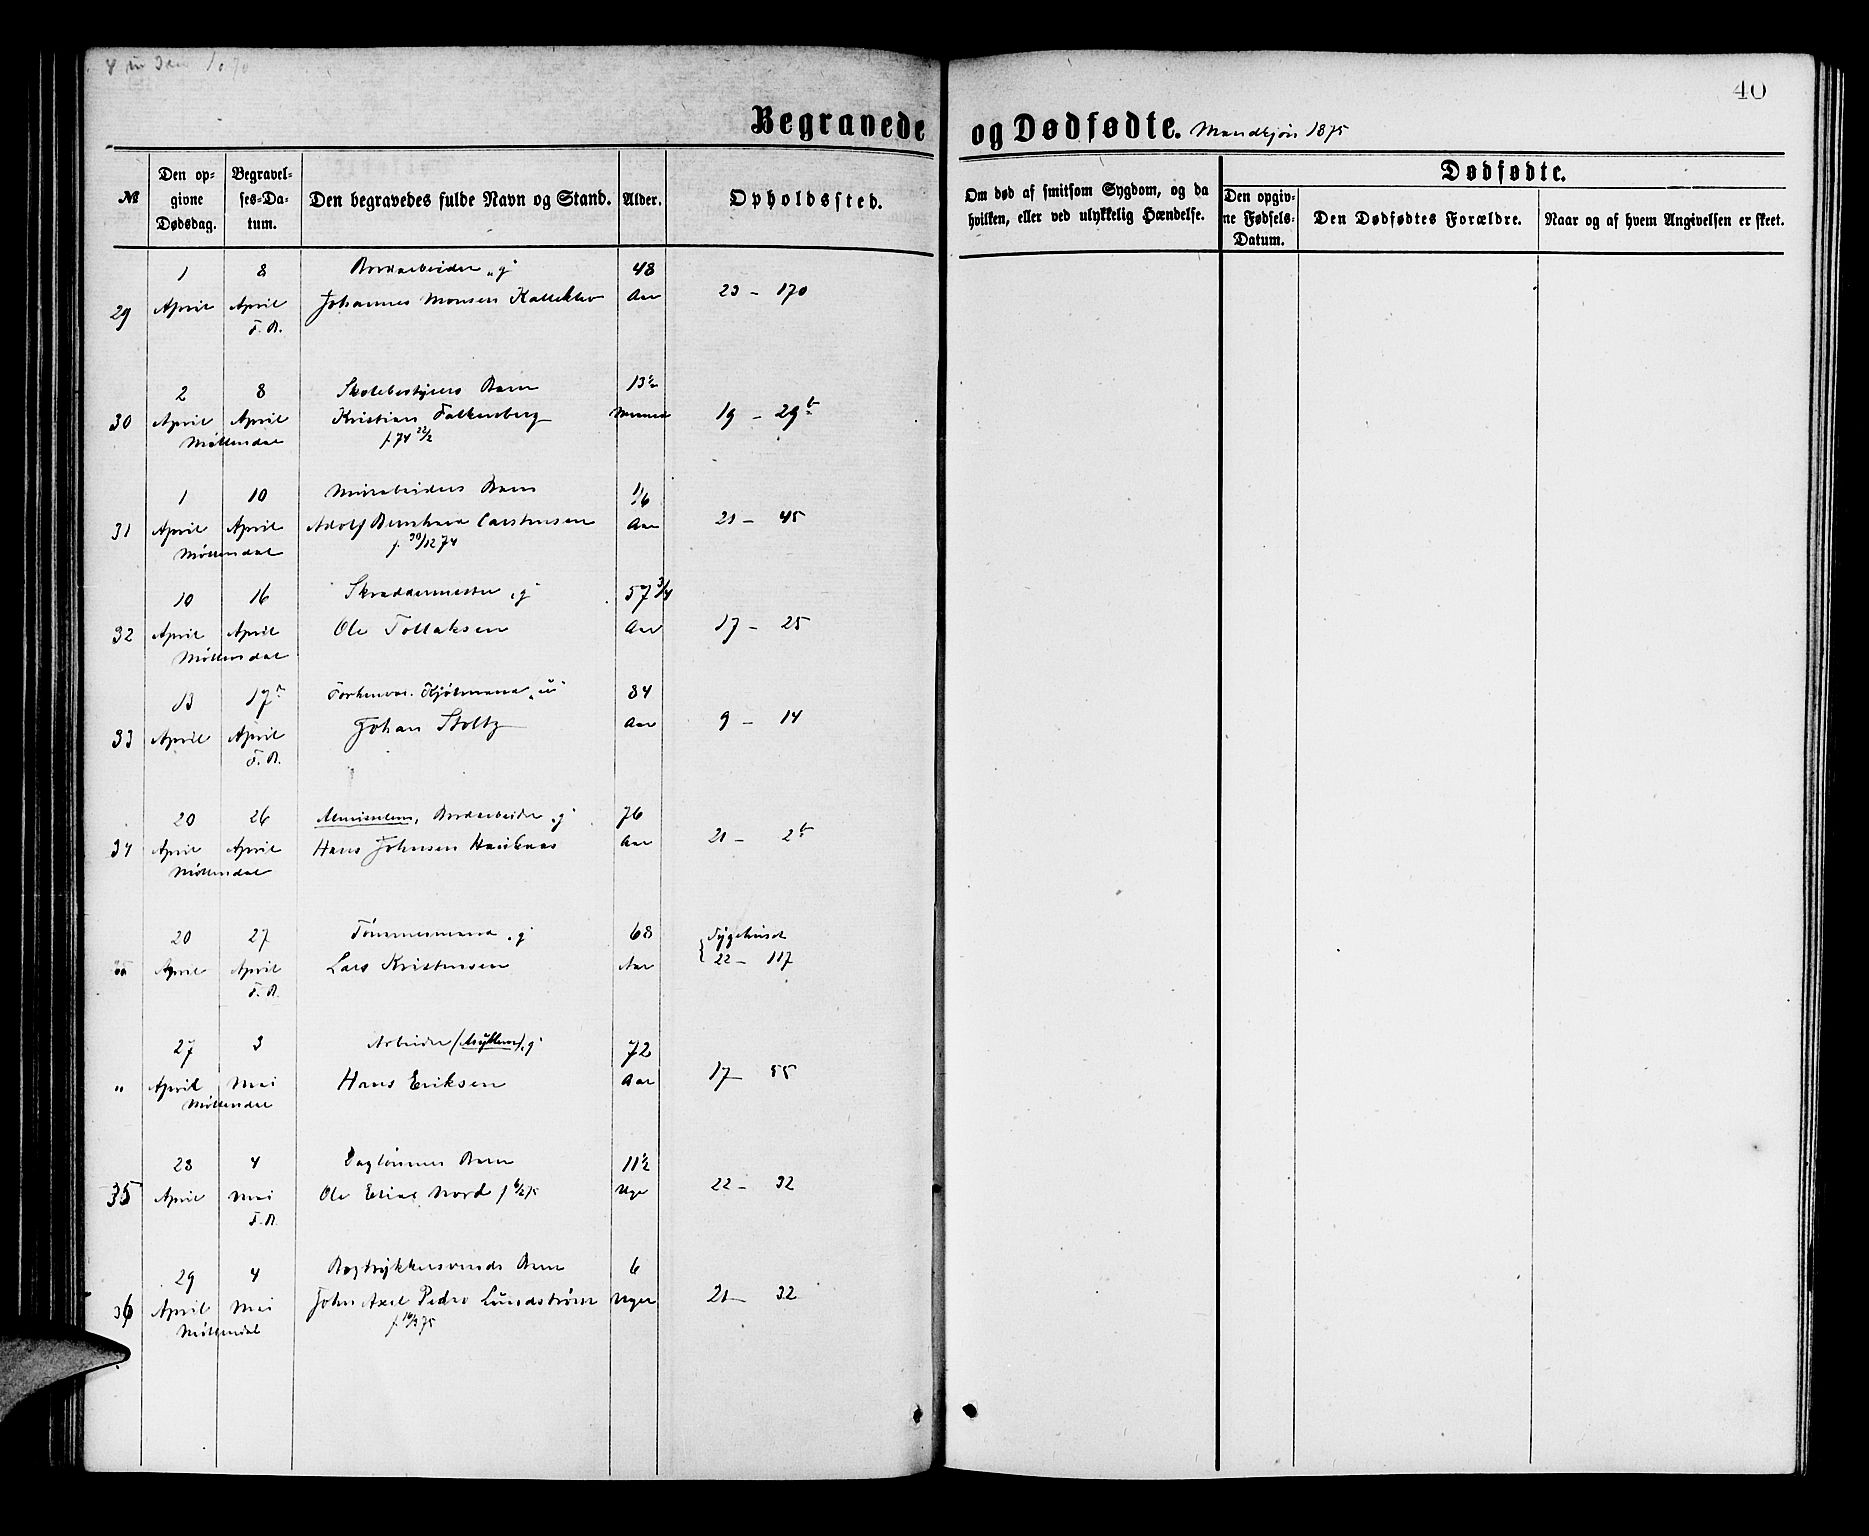 40
Begravede og Dødfødte. Mandkjøn 1875
№
Den opgivne Dødsdag.
Begravelses-Datum.
Den begravedes fulde Navn og Stand.
Alder.
Opholdssted.
Om død af smitsom Sygdom, og da hvilken, eller ved ulykkelig Hændelse.
Dødfødte.
Den opgivne Fødsels-Datum.
Den Dødfødtes Forældre.
Naar og af hvem Angivelsen er skeet.
1 8 Bordarbeider „g" 48
29 April April Johannes Monsen Kalleklev Aar 23 - 170
F. R.
2 8 Skolebestyrers Barn 13½
30 April April Kristian Falkenberg 19 - 29 b
Møllendal f. 74 22/2
1 10 Murarbeiders Barn 1/6
31 April April Adolf Bernhard Carstensen Aar 21 - 45
Møllendal f. 30/12 74
10 16 Skræddermester „g" 57 3/4
32 April April Ole Tollaksen Aar 17 - 25
Møllendal
13 17 Forhenvær. Kjøbmand „u" 84
33 April April Johan Stoltz Aar 9 - 14
F. R.
20 26 Almisselem, Bordarbeider „g" 76
34 April April Hans Johnsen Aar 21 - 2 b
Møllendal
20 27 Tømmermand „g" 68 Sygehuset
April April Lars Kristensen Aar 22 - 117
F. R.
27 3 Arbeider „g" 72
" April Mai Hans Eriksen Aar 17 - 55
Møllendal
28 4 Daglønners Barn 11½
35 April Mai Ole Elias Nord Uger 22 - 32
F. R.
29 4 Bogtrykkersvends Barn 6
36 April Mai John Axel Pedro Lundstrøm Uger 21 - 32
Møllendal f. 16/3 75